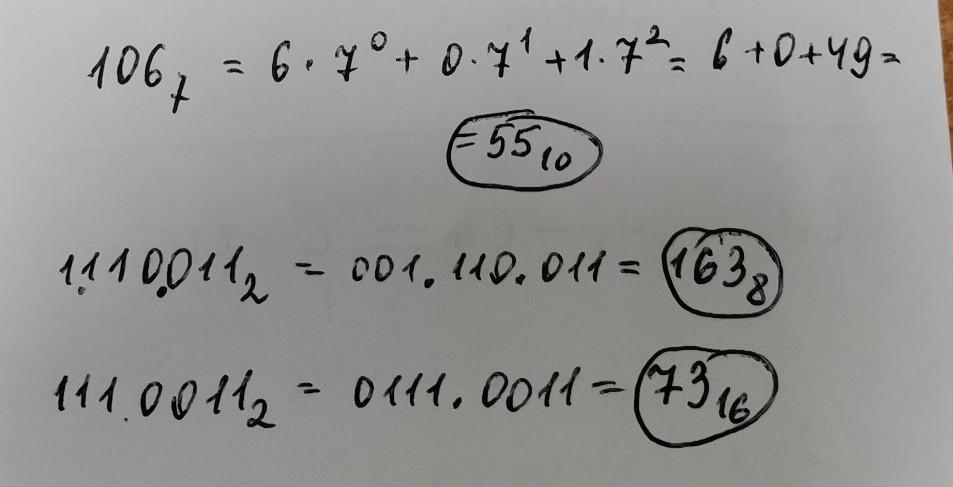 106₇ = 6·7⁰ + 0·7¹ + 1·7² = 6 + 0 + 49 =
= 55₁₀
1.110.011₂ = 001.110.011 = 163₈
111.0011₂ = 0111.0011 = 73₁₆